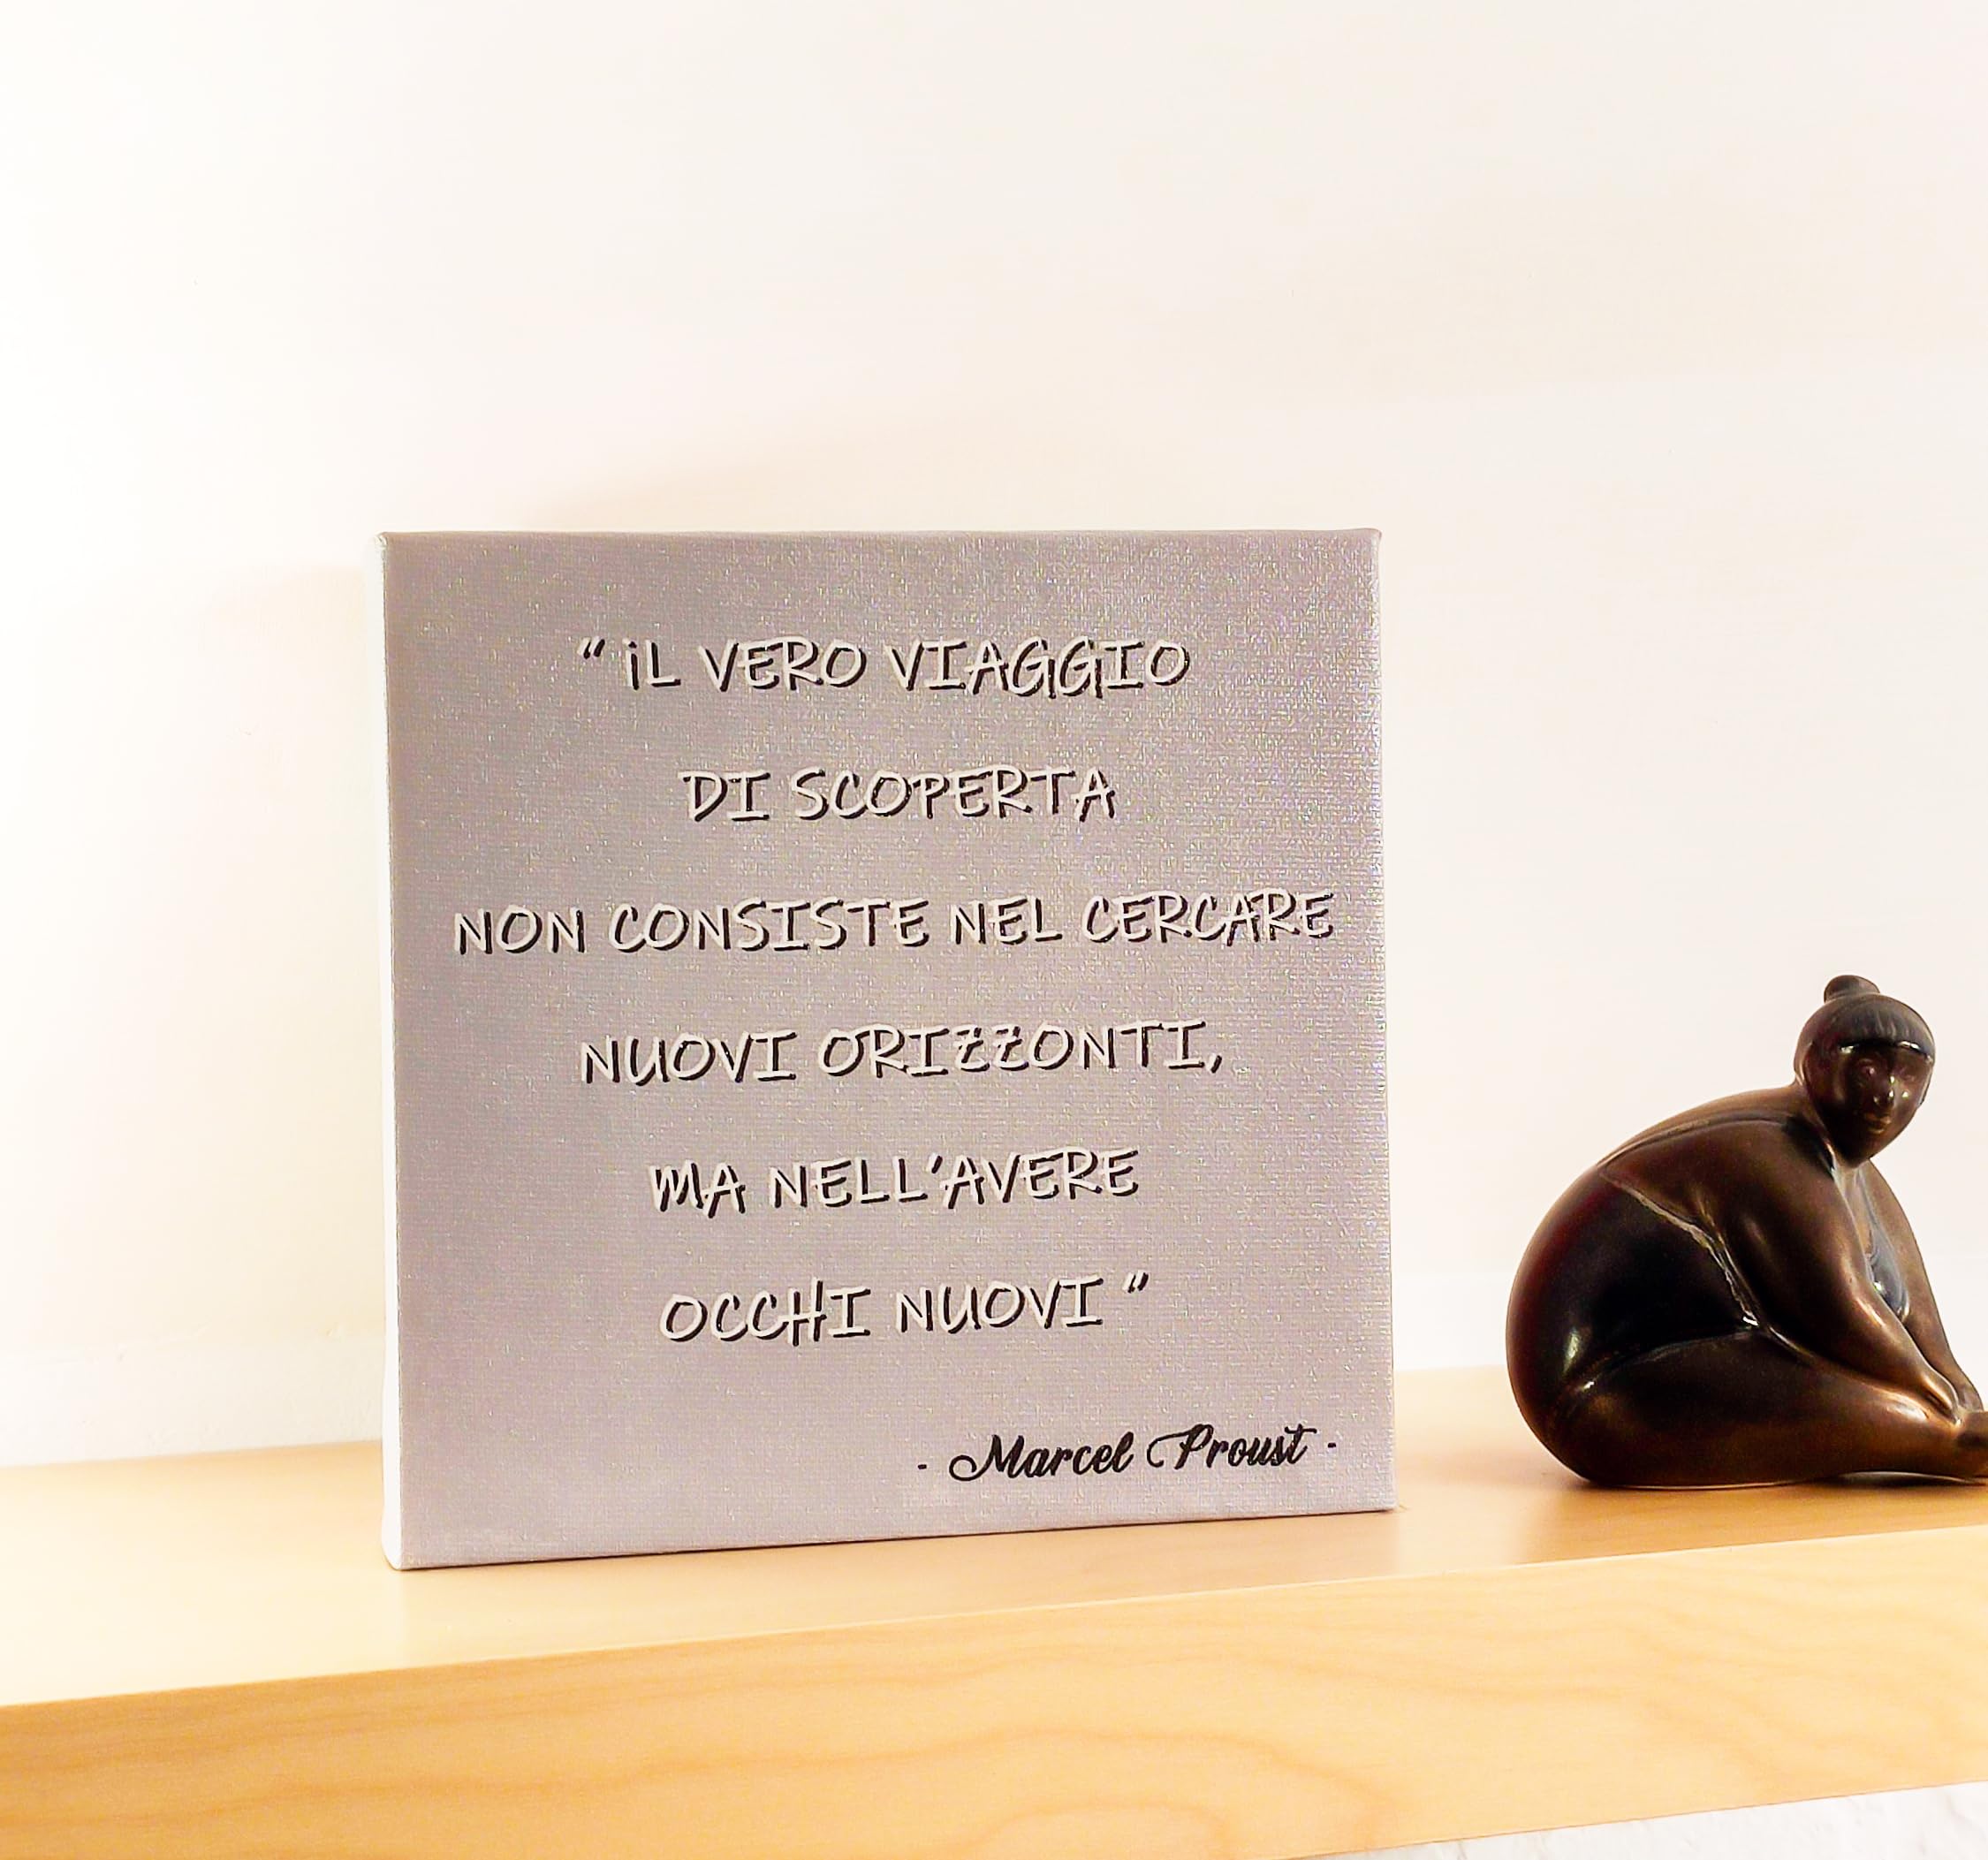 “ iL VERO VIAGGIO
DI SCOPERTA
NON CONSISTE NEL CERCARE
NUOVI ORIZZONTI,
MA NELL'AVERE
OCCHI NUOVI ”
- Marcel Proust -